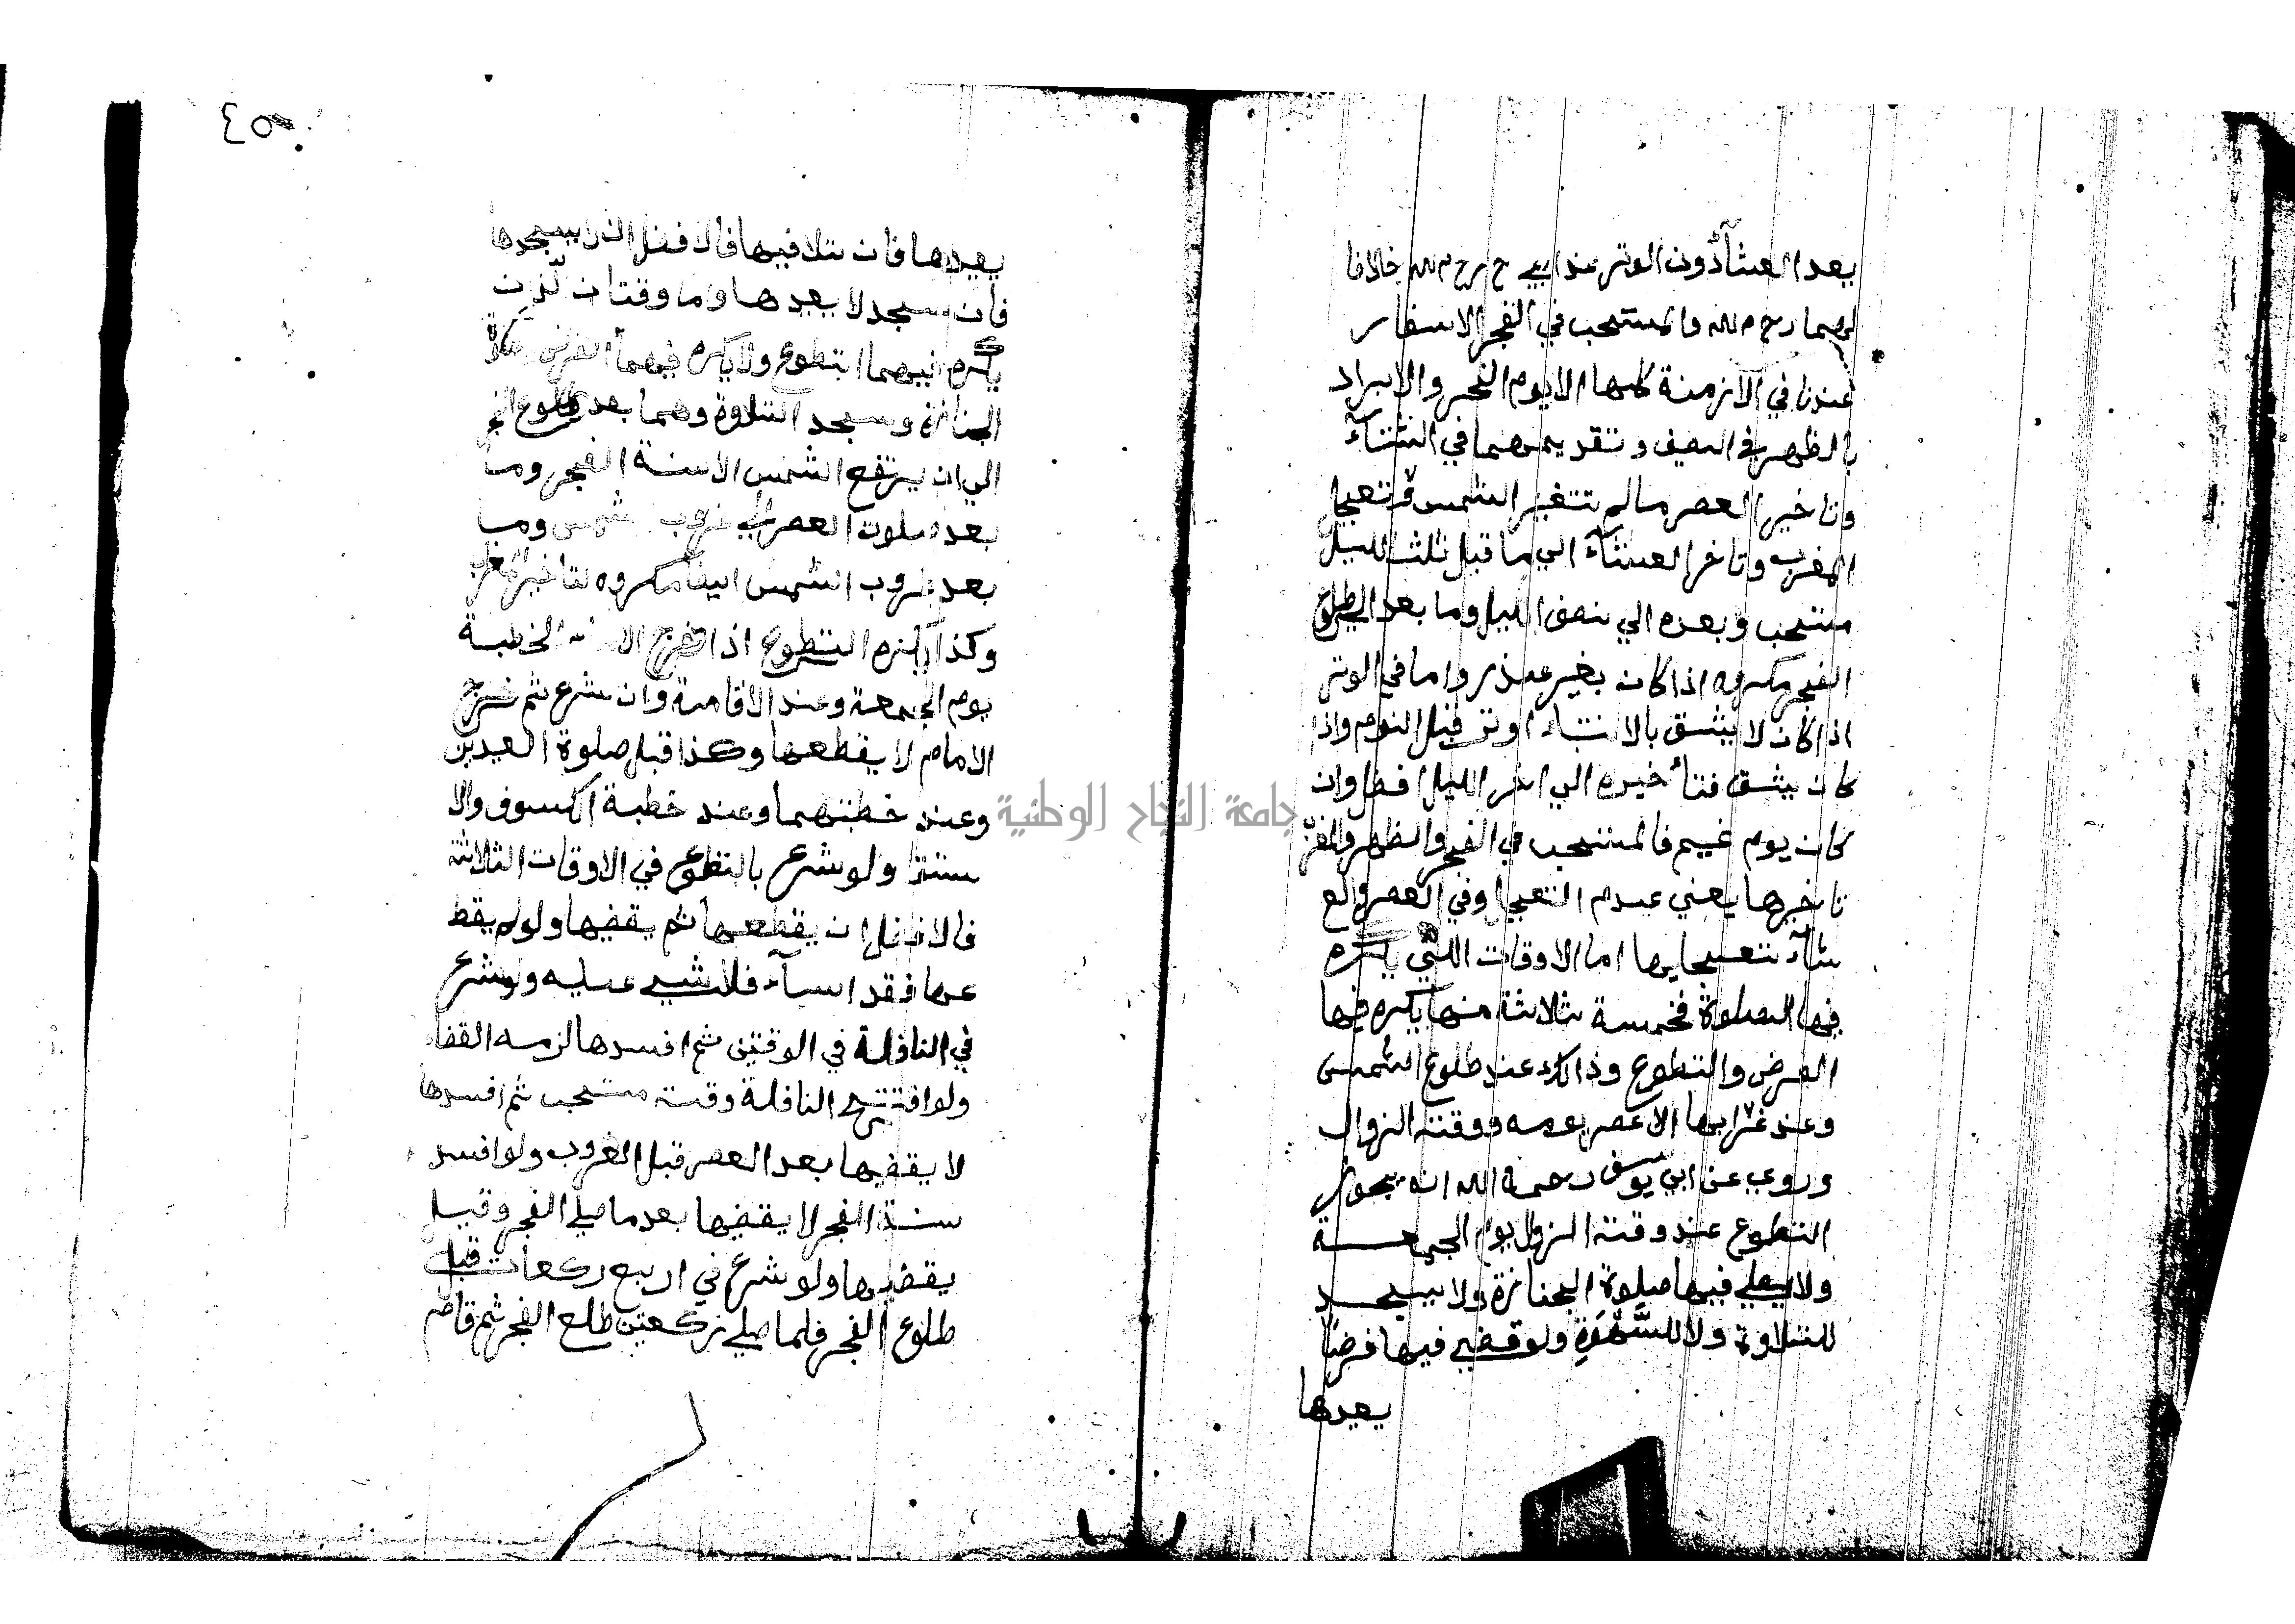 بعد العشآء دون الوتر عند ابي ح رحمه الله خلافا
لهما رحمه الله والمستحب في الفجر الاسفار
عندنا في الازمنة كلها الا يوم النحر والابراد
بالظهر في الصيف وتقديمهما في الشتآء
وتاخير العصر مالم تتغير الشمس وتعجيل
المغرب وتاخر العشآء الي ما قبل ثلث الليل
مستحب وبعده الي نصف الليل وما بعد الي طلوع
الفجر مكروه اذا كان بغير عذر واما في الوتر
اذا كان لا يثق بالانتباه اوتر قبل النوم واذا
كان يثق فتأخيره الي اخر الليل افضل وان
كان يوم غيم فالمستحب في الفجر والظهر والمغر
تاخيرها يعني عدم التعجيل وفي العصر والع
شآء تعجيلها اما الاوقات اللتي يكره
فيها الصلوة فخمسة ثلاثة منها يكره فيها
الفرض والتطوع وذالك عند طلوع الشمس
وعند غرابها الا عصر يومه ووقت الزوال
وروي عن ابي يوسف رحمة الله انه يجوز
التطوع عند وقت الزوال يوم الجمعة
ولا يصلي فيها صلوة الجنازة ولا يسجد
للتلاوة ولا للسهو ولو قضي فيها فرضا
يعيدها
٤٥
يعيدها فان تلا فيها فالافضل ان لا يسجدها
فان سجد لا يعيدها وما وقتان
يكره فيهما التطوع ولا يكره فيهما الفرض
الجنازة وسجد التلاوة وهما بعد طلوع الفجر
الي ان يرتفع الشمس الا سنة الفجر وما
بعد صلوت العصر الي غروب الشمس وما
بعد غروب الشمس ايضا مكروه لتاخير المغرب
وكذا يكره التطوع اذا خرج الامام للخطبة
يوم الجمعة وعند الاقامة وان شرع ثم خرج
الامام لا يقطعها وكذا قبل صلوة العيدين
وعند خطبتهما وعند خطبة الكسوف والا
ستسقا ولو شرع بالتطوع في الاوقات الثلاثة
فالافضل ان يقطعها ثم يقضيها ولولم يقط
عها فقد اسآء فلا شيي عليه ولو شرع
في النافلة في الوقتين ثم افسدها لزمه القضا
ولو افتتح النافلة وقت مستحب ثم افسدها
لا يقضيها بعد العصر قبل الغروب ولو افسد
سنة الفجر لا يقضيها بعد ما صلي الفجر وقيل
يقضيها ولو شرع في اربع ركعات قبل
طلوع الفجر فلما صلي ركعتين طلع الفجر ثم قام
جامعة النجاح الوطنية